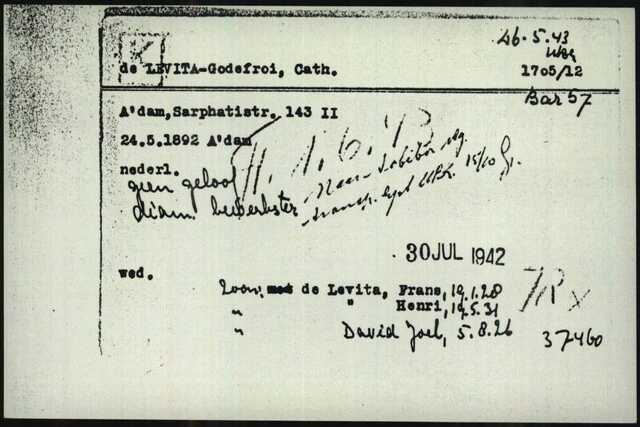 K
de LEVITA-Godefroi, Cath.
26.5.43
1705/12
Bar 57
A'dam,Sarphatistr. 143 II
24.5.1892 A'dam
nederl.
geen geloof
diam. bewerkster
1.6.43
Naar Sobibor
transp. lyst 15/10
30 JUL 1942
wed.
Zoon: met de Levita, Frans, 19.1.28
" " Henri, 19.5.31
" David Joel, 5.8.26
x
37460